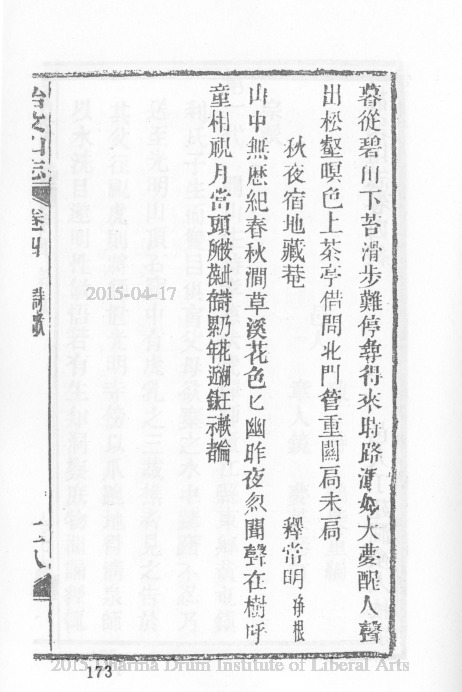 暮從碧山下苔滑步難停尋得來時路渾如大夢醒人聲
出松壑暝色上茶亭借問北門管重關扃未扃
秋夜宿地藏菴 釋常明 淨根
山中無歷紀春秋澗草溪花色匕幽昨夜忽聞聲在樹呼
童相視月當頭
山志 卷四 詩
2015-04-17
173
2015 Dharma Drum Institute of Liberal Arts